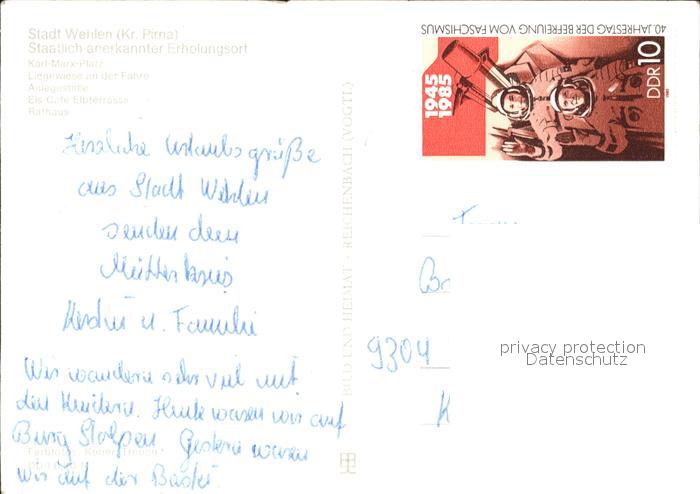 Stadt Wehlen (Kr. Pirna)
Staatlich anerkannter Erholungsort
Karl-Marx-Platz
Liegewiese an der Fähre
Anlegestelle
Eis-Café Elbterrasse
Rathaus
Herzliche Urlaubsgrüße
aus Stadt Wehlen
senden dem
Mütterkreis
Kerstin u. Familie
Wir wandern sehr viel mit
den Kindern. Heute waren wir auf
Burg Stolpen. Gestern waren
wir auf der Bastei.
BILD UND HEIMAT · REICHENBACH (VOGTL)
40. JAHRESTAG DER BEFREIUNG VOM FASCHISMUS
1945
1985
DDR 10
9304
K
privacy protection
Datenschutz